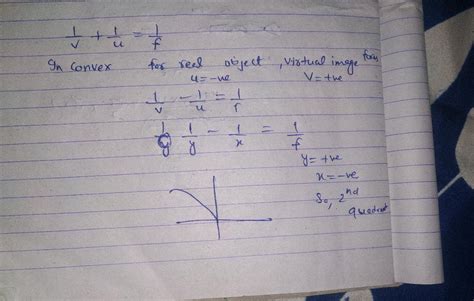 1/v + 1/u = 1/f
In convex for real object, virtual image form
u = -ve V = +ve
1/v - 1/u = 1/f
1/y - 1/x = 1/f
y = +ve
x = -ve
So, 2nd
quadrant